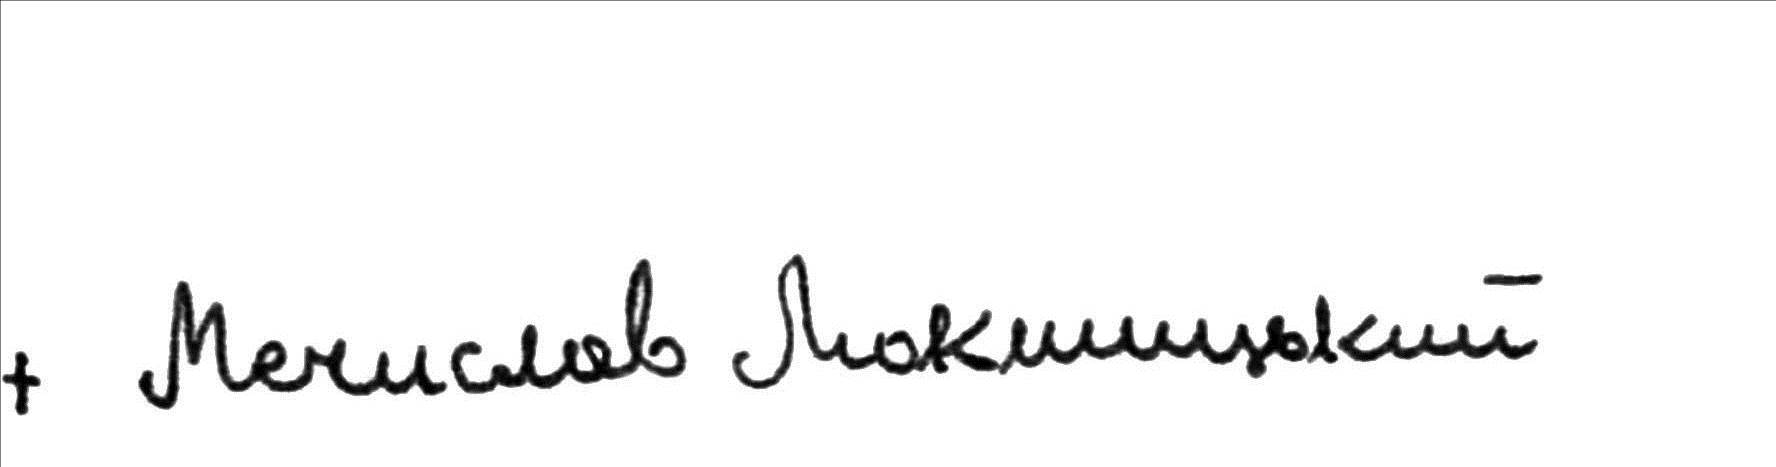 + Мечислав Мокшицький